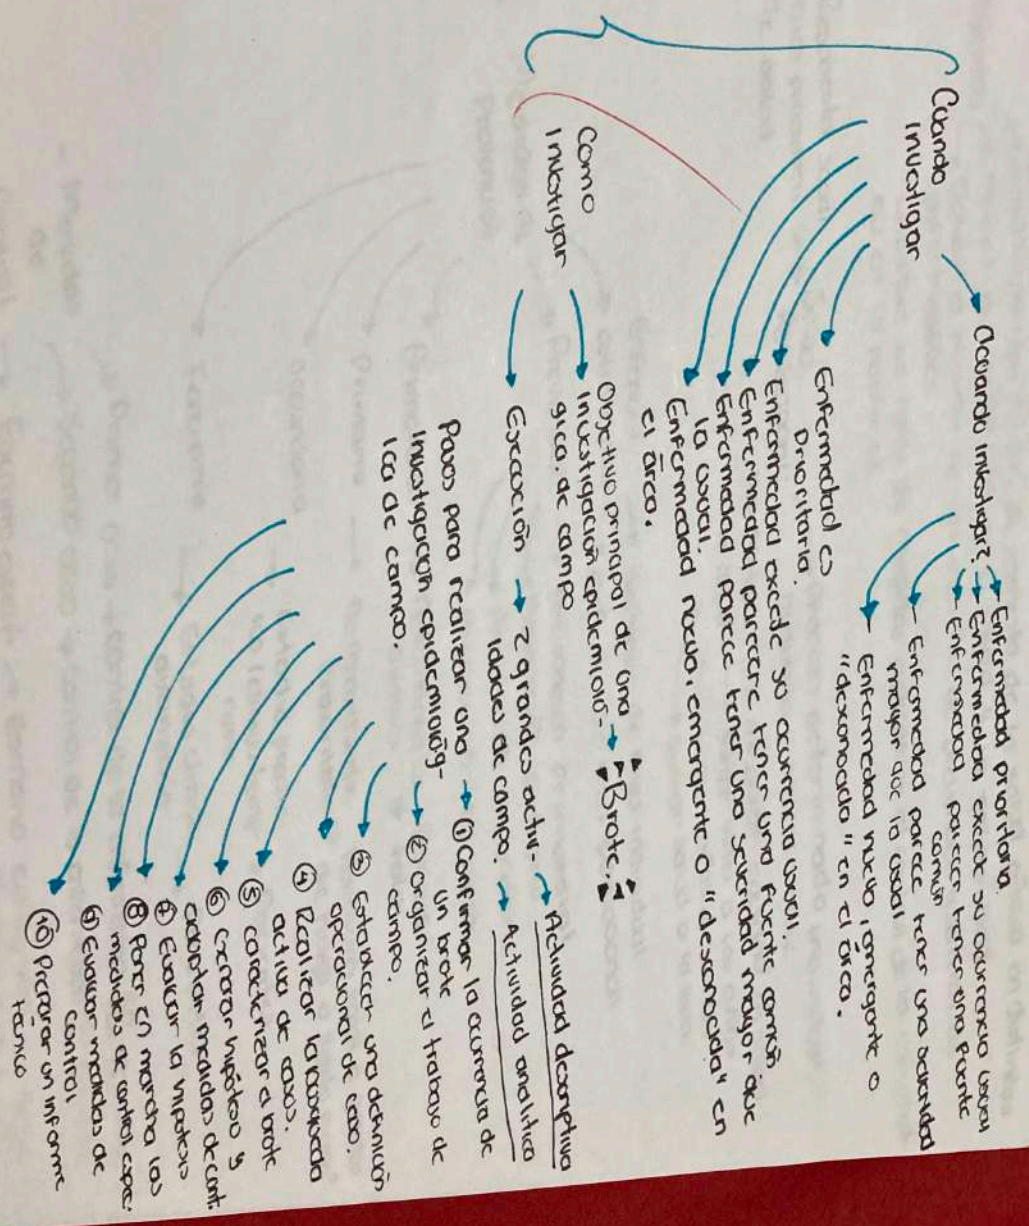 Cuando
Investigar
Cuando investigar?
Enfermedad prioritaria
Enfermedad excede su ocurrencia usual
Enfermedad parecer tener una fuente
común
Enfermedad parece tener una severidad
mayor que la usual
Enfermedad nuevo, emergente o
"desconocida" en el área.
Enfermedad es
Prioritaria.
Enfermedad excede su ocurrencia usual.
Enfermedad parecere tener una fuente común
Enfermedad parece tener una severidad mayor que
la usual.
Enfermedad nueva, emergente o "desconocida" en
el área.
Como
Investigar
Objetivo principal de una
Investigación epidemioló-
gica. de campo
Brote.
Ejecución
2 grandes activ-
idades de campo.
Actividad descriptiva
Actividad analítica
Pasos para realizar una
Investigación epidemiológ-
ica de campo.
① Confirmar la ocurrencia de
un brote
② Organizar el trabajo de
campo.
③ Establecer una definición
operacional de caso.
④ Realizar la
activa de casos.
⑤ caracterizar el brote
⑥ Generar hipótesis y
adoptar medidas de cont.
⑦ Evaluar la hipotesis
⑧ Poner en marcha las
medidas de control espe.
⑨ Evaluar medidas de
control
⑩ Preparar un informe
técnico